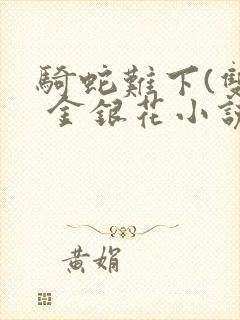 騎蛇難下(雙
金銀花小說
黃娟